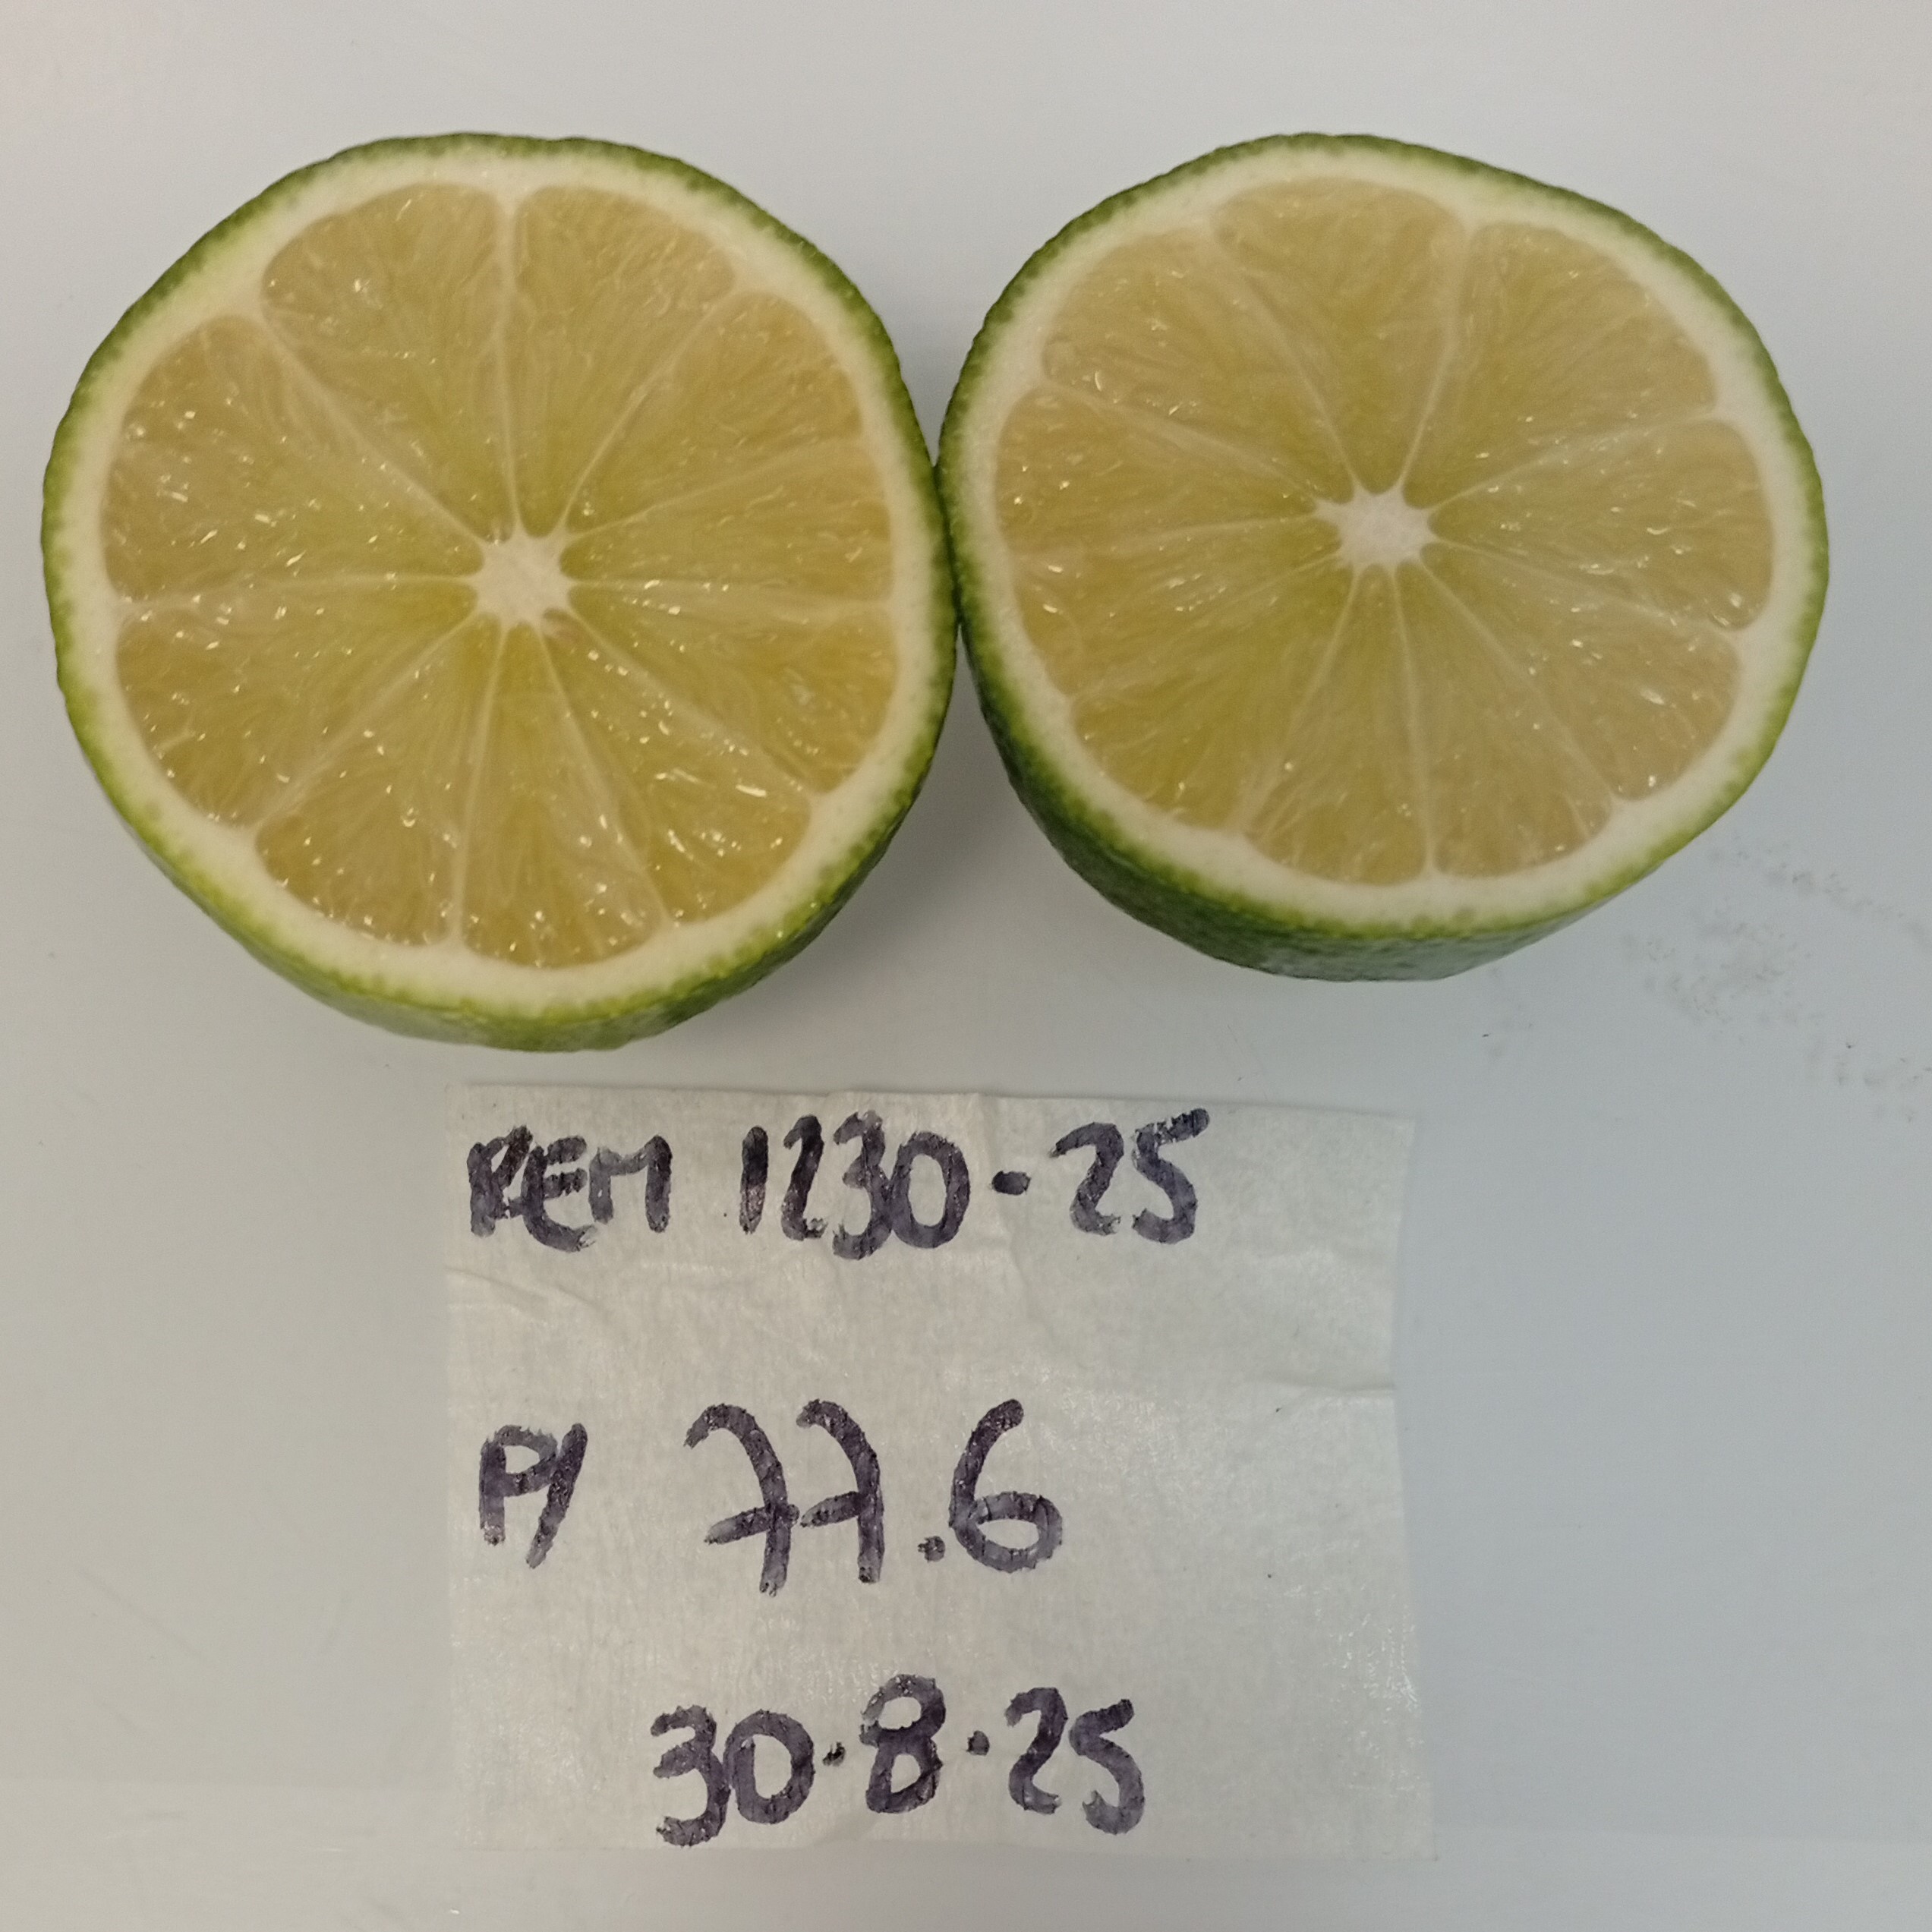 REM 1230-25
P/ 77.6
30.8.25